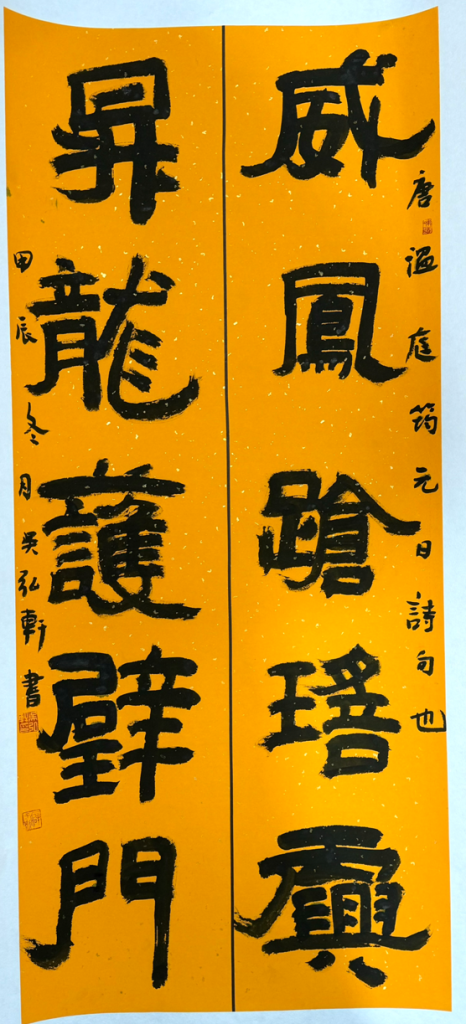 唐溫庭筠元日詩句也
威鳳蹌瑤虡
昇龍護璧門
甲辰冬月吳弘軒書